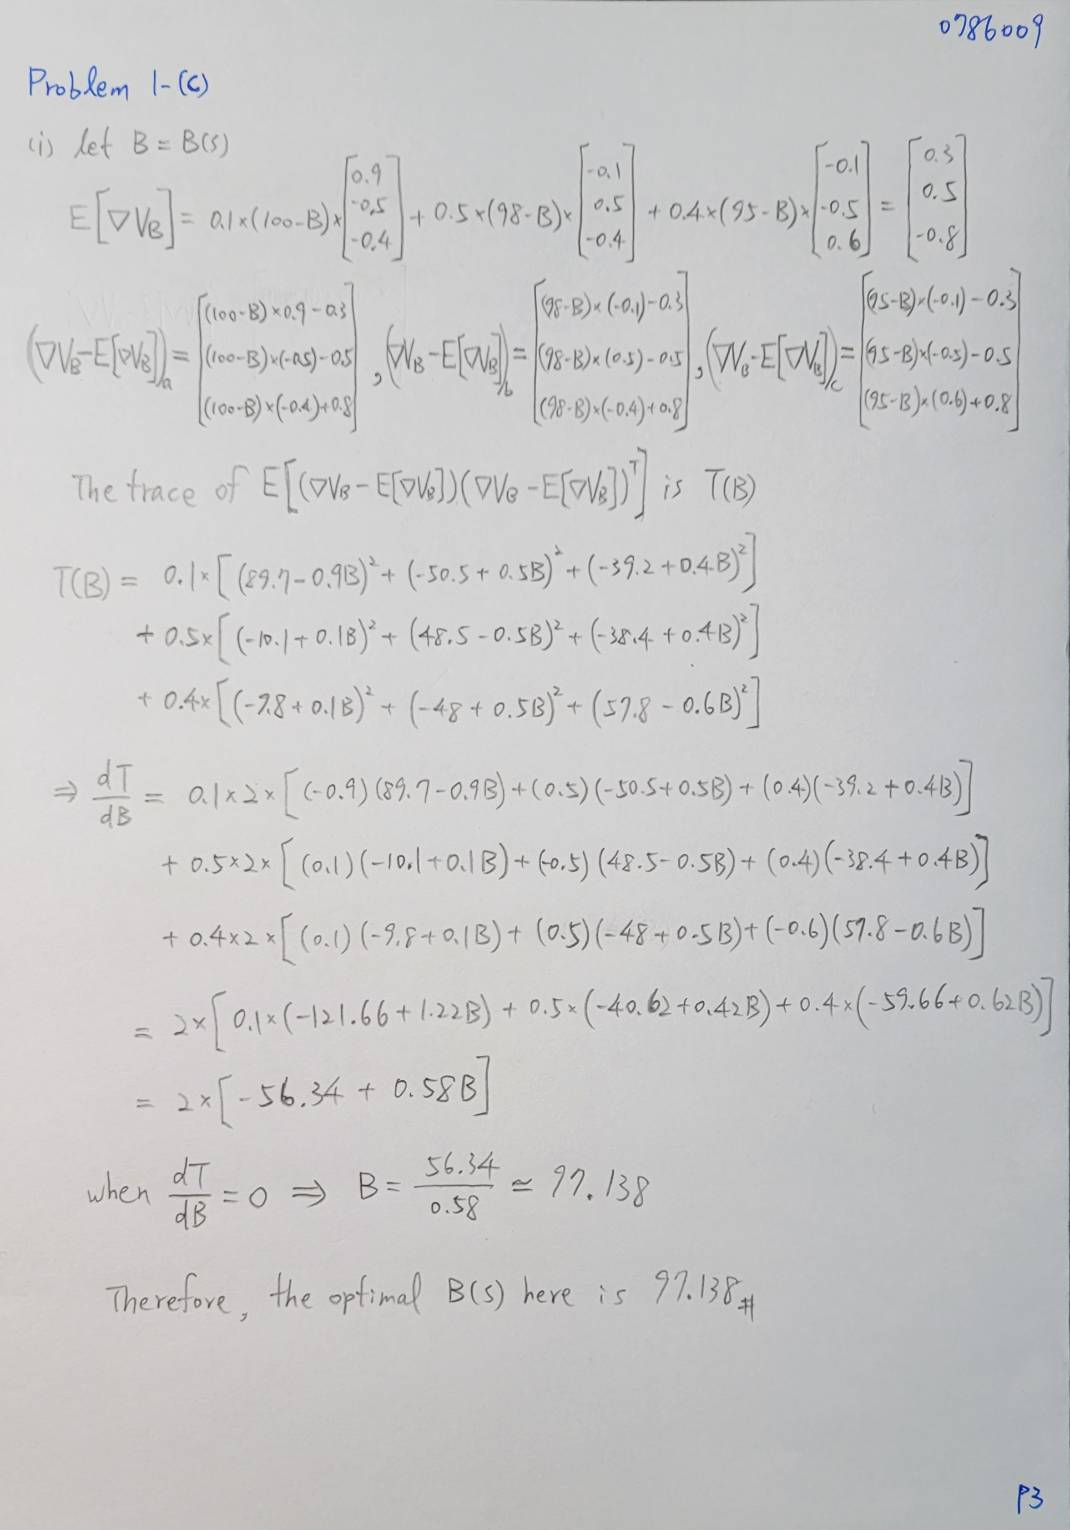 0786009
Problem 1-(c)
(i) let B = B(s)
E[∇V_B] = 0.1×(100-B)×[0.9 -0.5 -0.4] + 0.5×(98-B)×[-0.1 0.5 -0.4] + 0.4×(95-B)×[-0.1 -0.5 0.6] = [0.3 0.5 -0.8]
(∇V_B-E[∇V_B])_a = [(100-B)×0.9-0.3 (100-B)×(-0.5)-0.5 (100-B)×(-0.4)+0.8], (∇V_B-E[∇V_B])_b = [(98-B)×(-0.1)-0.3 (98-B)×(0.5)-0.5 (98-B)×(-0.4)+0.8], (∇V_B-E[∇V_B])_c = [(95-B)×(-0.1)-0.3 (95-B)×(-0.5)-0.5 (95-B)×(0.6)+0.8]
The trace of E[(∇V_B-E[∇V_B])(∇V_B-E[∇V_B])^T] is T(B)
T(B) = 0.1×[(89.7-0.9B)²+(-50.5+0.5B)²+(-39.2+0.4B)²]
+ 0.5×[(-10.1+0.1B)²+(48.5-0.5B)²+(-38.4+0.4B)²]
+ 0.4×[(-9.8+0.1B)²+(-48+0.5B)²+(57.8-0.6B)²]
⇒ dT/dB = 0.1×2×[(-0.9)(89.7-0.9B)+(0.5)(-50.5+0.5B)+(0.4)(-39.2+0.4B)]
+ 0.5×2×[(0.1)(-10.1+0.1B)+(-0.5)(48.5-0.5B)+(0.4)(-38.4+0.4B)]
+ 0.4×2×[(0.1)(-9.8+0.1B)+(0.5)(-48+0.5B)+(-0.6)(57.8-0.6B)]
= 2×[0.1×(-121.66+1.22B)+0.5×(-40.62+0.42B)+0.4×(-59.66+0.62B)]
= 2×[-56.34+0.58B]
when dT/dB = 0 ⇒ B = 56.34/0.58 ≃ 97.138
Therefore, the optimal B(s) here is 97.138#
P3